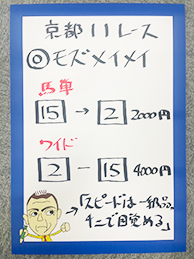 京都11レース
◎モズメイメイ
馬単
15→2 2000円
ワイド
2-15 4000円
「スピードは一級品。
千二で目覚める」